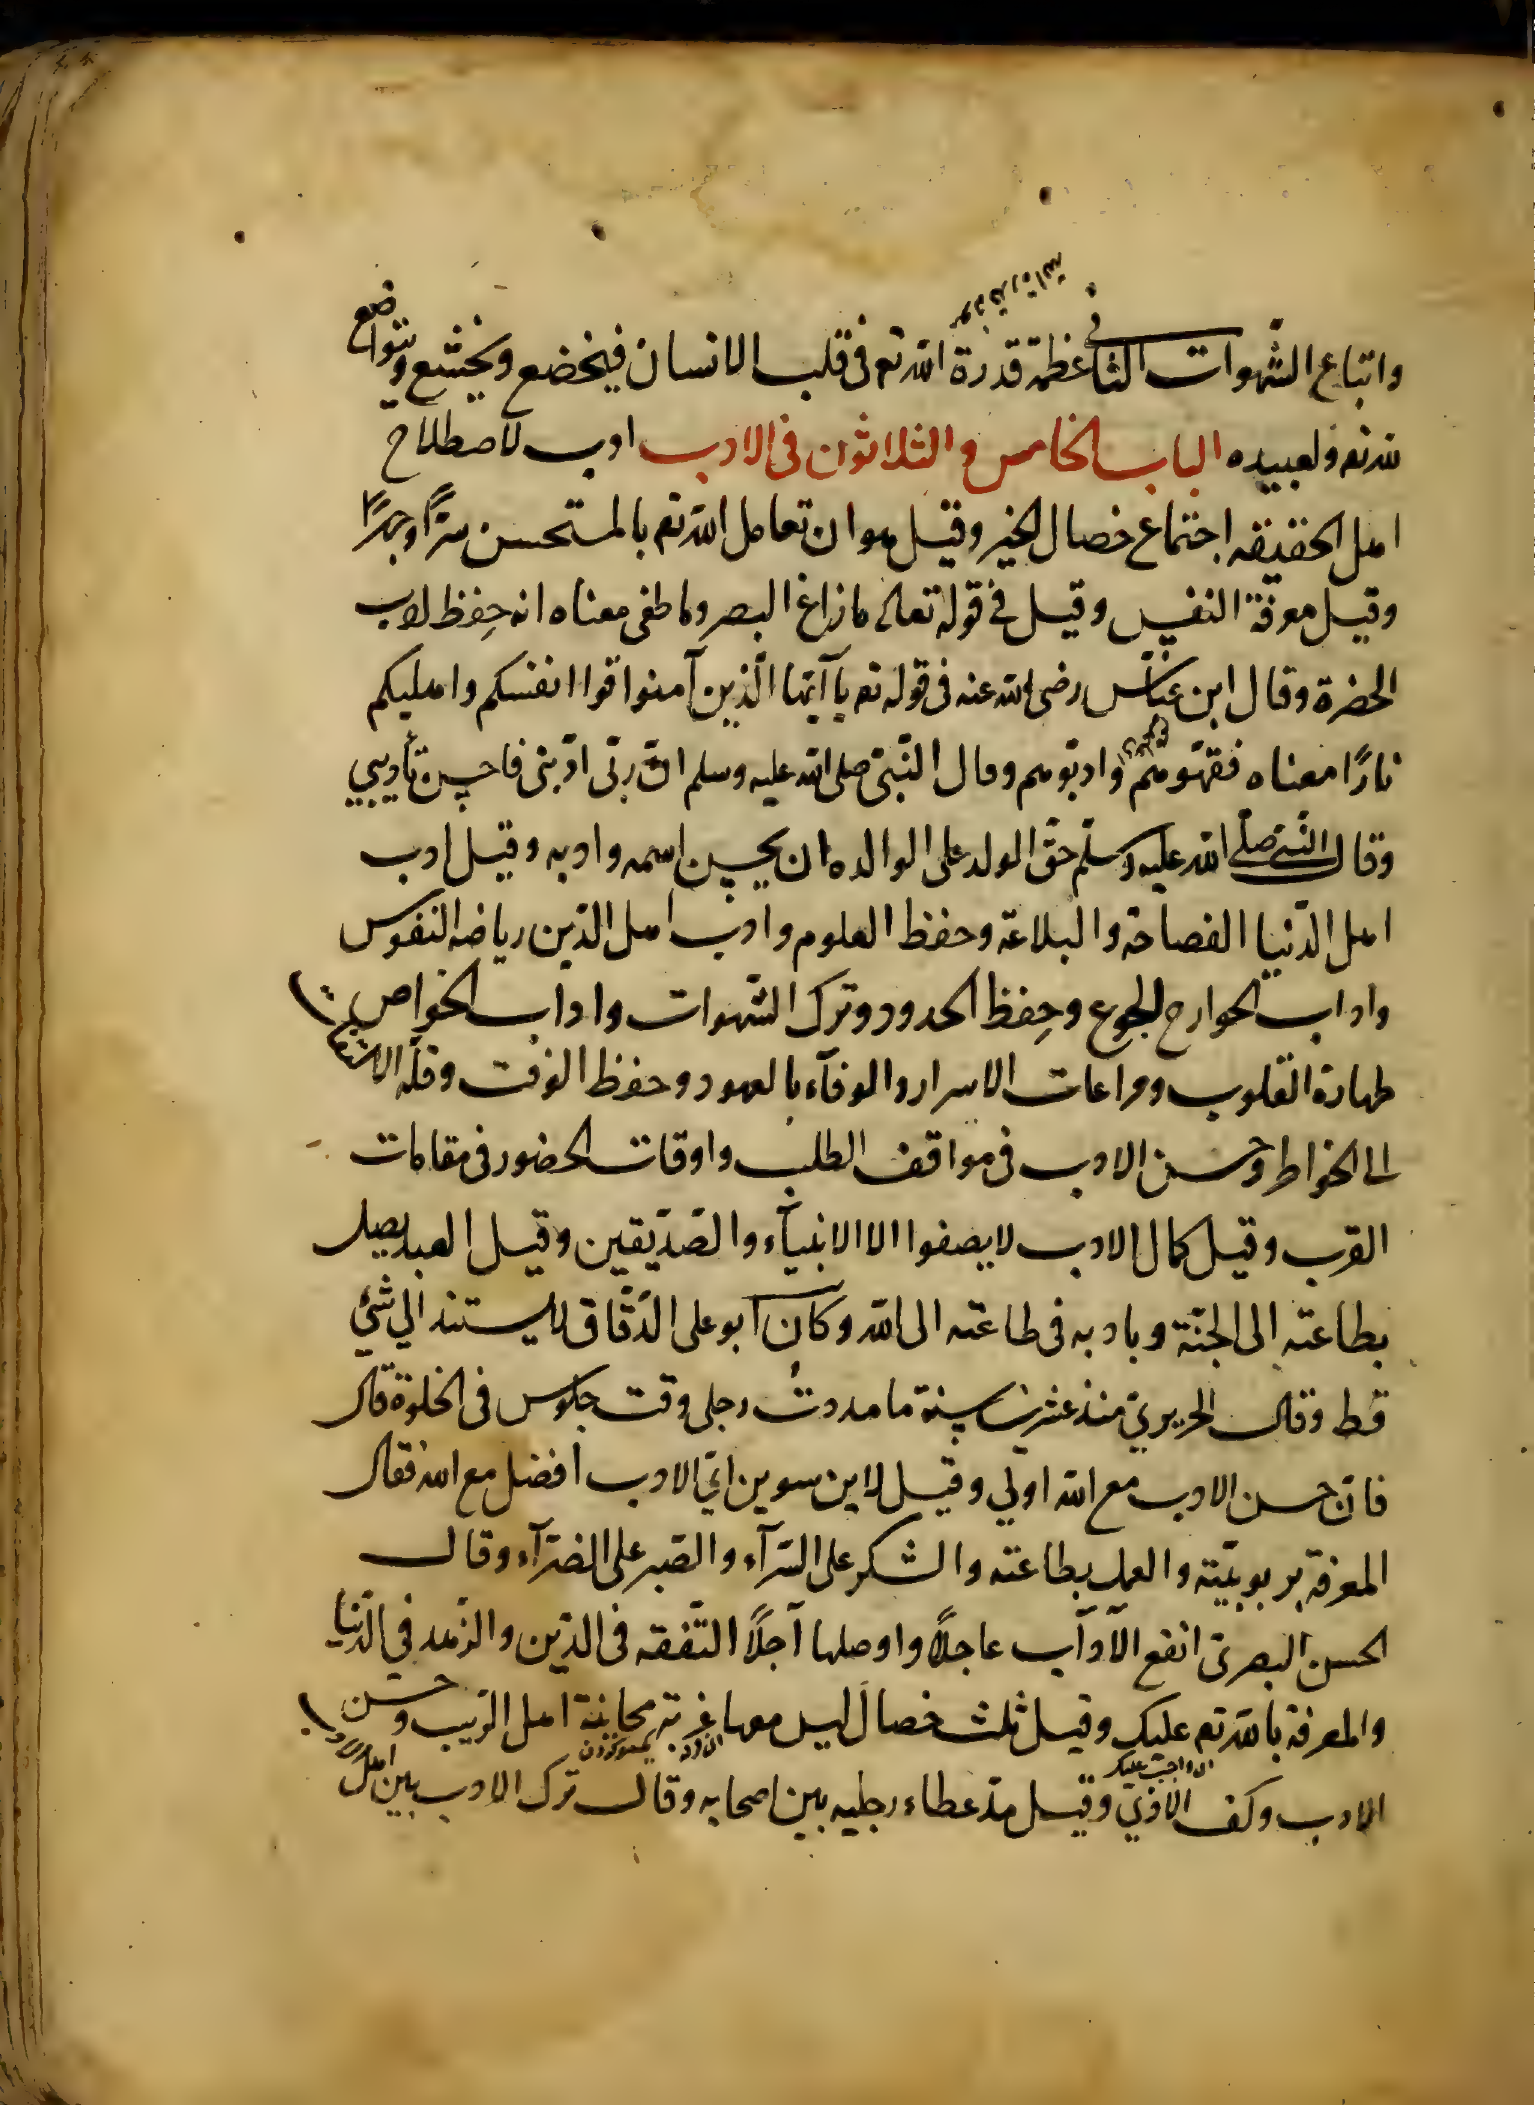 واتباع الشهوات الثانى عظمة قدرة الله تع فى قلب الانسان فيخضع ويخشع ويتواضع
لله تع ولعبيده الباب الخامس والثلاثون فى الادب ادب لاصطلاح
اهل الحقيقه اجتماع خصال الخير وقيل هو ان تعامل الله تع بالمستحسن سرًّا وجهرًا
وقيل معرفة النفس وقيل فى قوله تعالى ما زاغ البصر وما طغى معناه انه حِفظ لادب
الحضرة وقال ابن عبّاس رضى الله عنه فى قوله تع يآ ايّها الّذين آمنوا قوا انفسكم واهليكم
نارًا معناه فقهّوهم وادبّوهم وقال النّبىّ صلى الله عليه وسلم انّ ربّى ادّبنى فاحسن تأديبى
وقال النّبىّ صلّى الله عليه وسلّم حقّ الولد على الوالده ان يحسن اسمه وادبه وقيل ادب
اهل الدّنيا الفصاحة والبلاغة وحفظ العلوم وادب اهل الدّين رياضه النفوس
واداب الجوارح الجوع وحِفظ الحدود وترك الشّهوات واداب الخواص
طهارة القلوب ومراعات الاسرار والوفآء بالعهود وحفظ الوقت وقلّه الالتفات
الى الخواطر وحسن الادب فى مواقف الطلب واوقات الحضور فى مقامات
القرب وقيل كمال الادب لا يصفوا الا الانبيآء والصّدّيقين وقيل العبد يصل
بطاعته الى الجنّة وبادبه فى طاعته الى الله وكان ابو على الدّقّاق لا يستند الى شئ
قط وقال الحريرىّ منذ عشرين سنة ما مددتُ رجلى وقت جلوس فى الخلوة قال
فانّ حسن الادب مع الله اولى وقيل لابن سيرين اىّ الادب افضل مع الله فقال
المعرفة بربوبيّته والعمل بطاعته والشكر على السّرآء والصّبر على الضرّآء وقال
الحسن البصرىّ انفع الآدآب عاجلًا واوصلها آجلًا التّفقه فى الدّين والزّهد فى الدّنيا
والمعرفة بالله تع عليك وقيل ثلث خصال ليس معها غربة مجانبة اهل الرّيب وحسن
الادب وكف الاذىّ وقيل مدّ عطاء رجليه بين اصحابه وقال ترك الادب بين اهل الادب